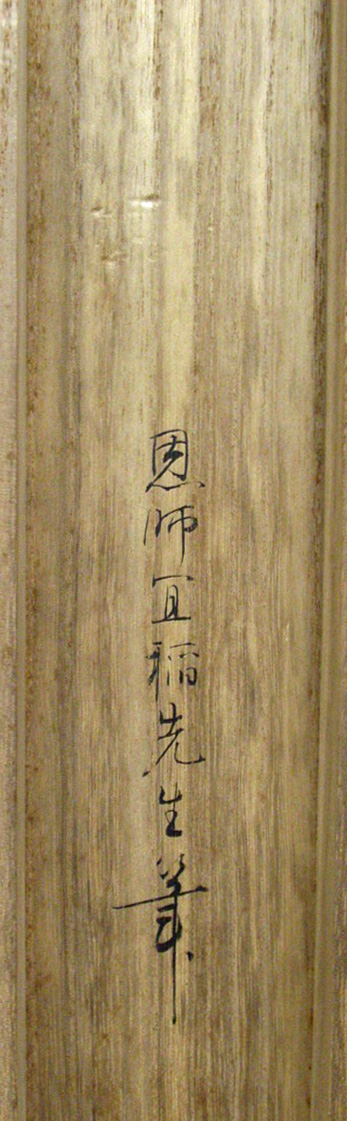 恩師宜稲先生筆